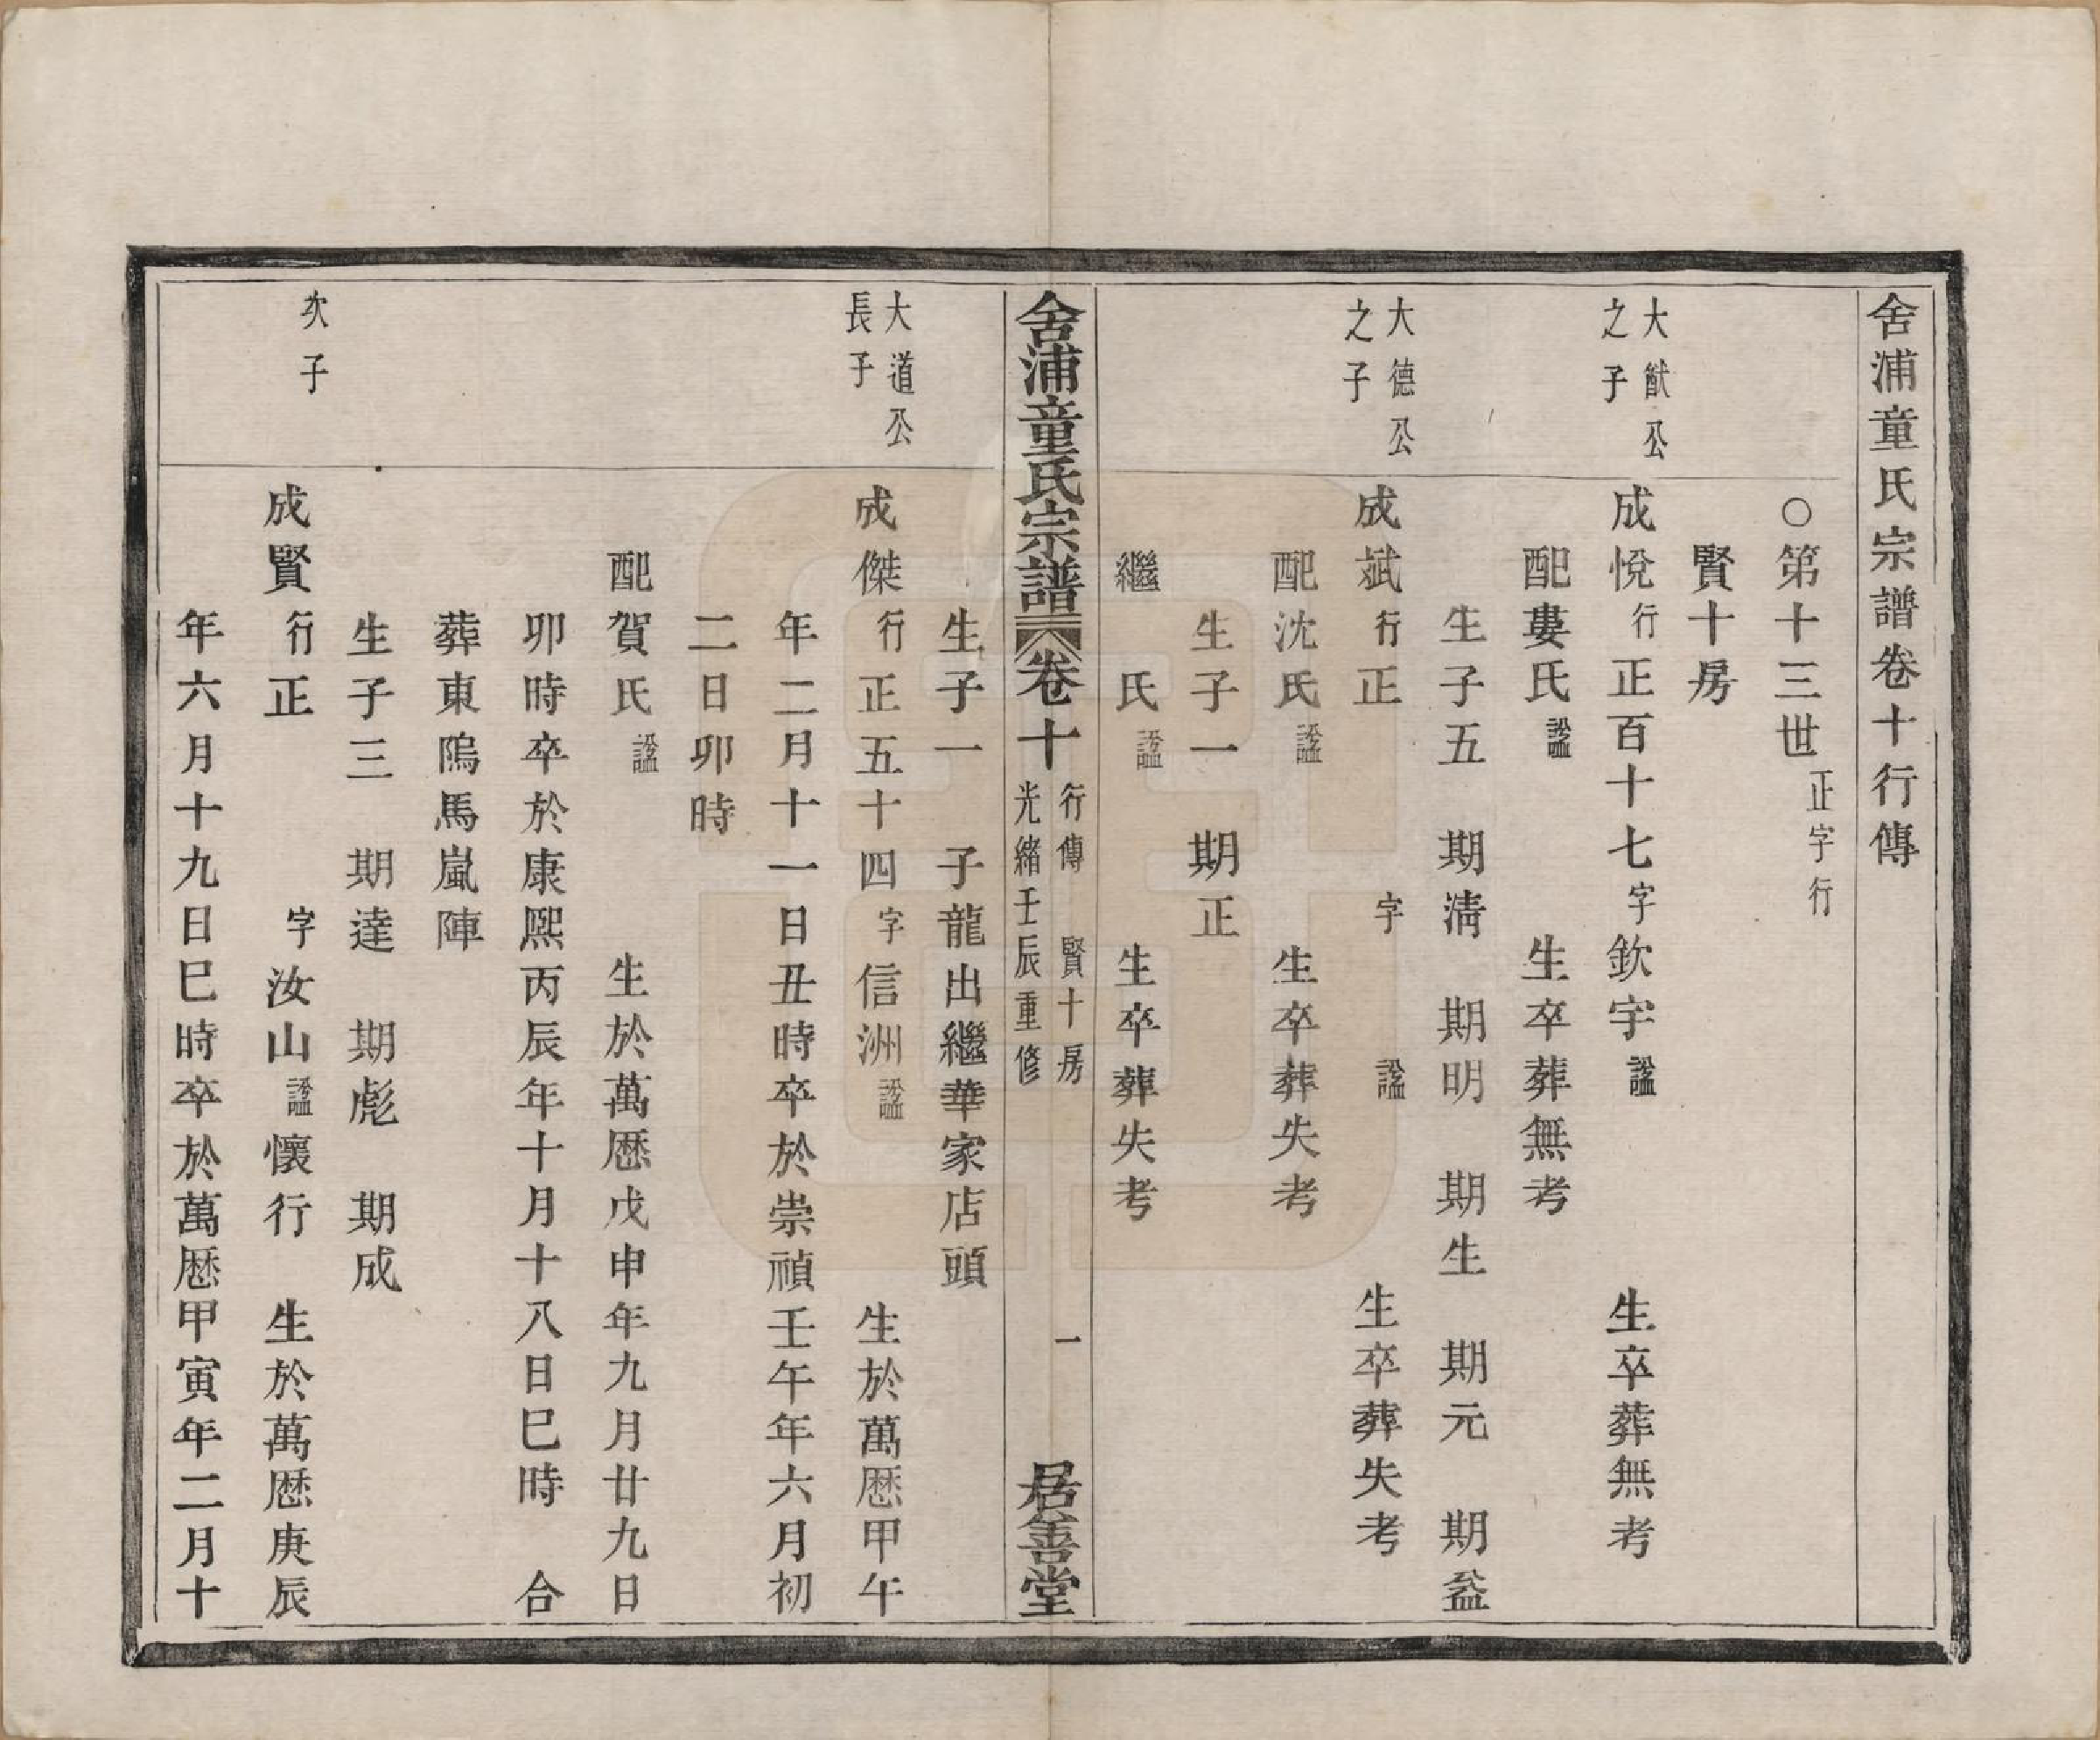 舍浦童氏宗譜卷十行傳
○第十三世正字行
賢十房
大猷公
之子
成悅行正百十七字欽宇諡 生卒葬無考
配婁氏諡 生卒葬無考
生子五 期淸 期明 期生 期元 期益
大德公
之子
成斌行正 字 諡 生卒葬失考
配沈氏諡 生卒葬失考
生子一 期正
繼 氏諡 生卒葬失考
舍浦童氏宗譜 卷十 行傳 賢十房 一 居善堂
光緒壬辰重修
生子一 子龍出繼華家店頭
大道公
長子
成傑行正五十四字信洲諡 生於萬厯甲午
年二月十一日丑時卒於崇禎壬午年六月初
二日卯時
配賀氏諡 生於萬厯戊申年九月廿九日
卯時卒於康熙丙辰年十月十八日巳時 合
葬東隖馬嵐陣
生子三 期達 期彪 期成
次子
成賢行正 字汝山諡懷行 生於萬厯庚辰
年六月十九日巳時卒於萬厯甲寅年二月十